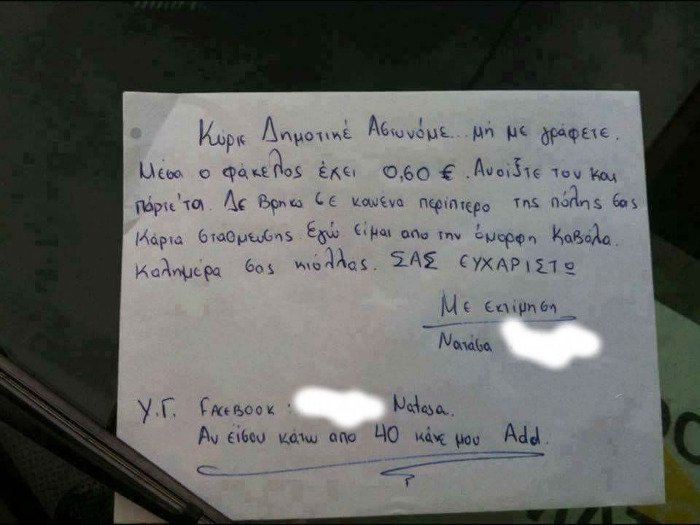 Κυριε Δημοτικέ Αστυνόμε... μή με γράφετε.
Μέσα ο φάκελος έχει 0,60 €. Ανοιξτε τον και
πάρτε'τα. Δε βρηκα σε κανένα περίπτερο της πόλης σας
Κάρτα στάθμευσης. Εγώ είμαι απο την όμορφη Καβάλα.
Καλημέρα σας κιόλλας. ΣΑΣ ΕΥΧΑΡΙΣΤΩ
Με εκτίμηση
Νατάσα
Υ.Γ. FACEBOOK : Natasa.
Αν είσου κάτω απο 40 κάνε μου Add.